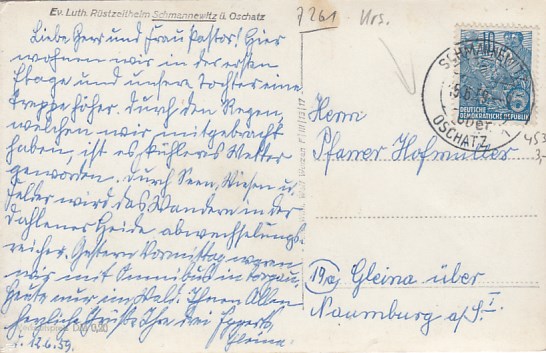 Ev. Luth. Rüstzeitheim Schmannewitz ü. Oschatz
Liebe Herr und Frau Pastor! Hier
wohnen wir in der ersten
Etage und unsere Tochter eine
Treppe höher. Durch den Regen,
welchen wir mitgebracht
haben, ist es kühleres Wetter
geworden. Durch Seen, Wiesen u.
Felder wird das Wandern in der
Dahlener Heide abwechselungs-
reicher. Gestern Vormittag waren
wir mit Omnibus in Torgau.
Heute nur im Wald. Ihnen Allen
herzliche Grüße Ihre drei Eggerts,
Gleina.
d. 12.6.59.
7261
Krs.
SCHMANNEWITZ
über
OSCHATZ
DEUTSCHE
DEMOKRATISCHE REPUBLIK
Herrn
Pfarrer Hofmüller
453
3,-
19a) Gleina über
Naumburg a/S. I